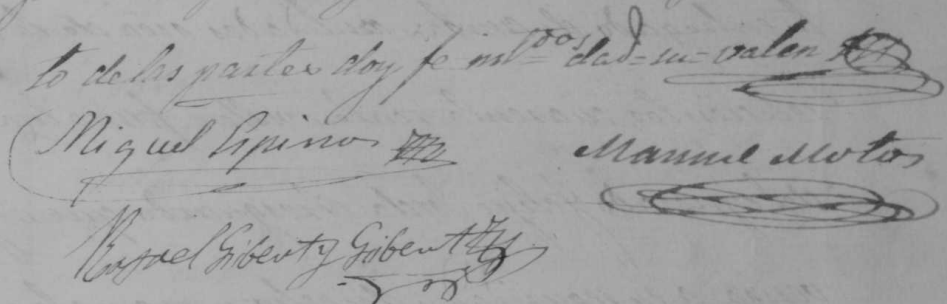 to de las partes doy fe mtdos dad=su=valen
Miguel Espinos
Manuel Motos
Rafael Gibert y Gibert